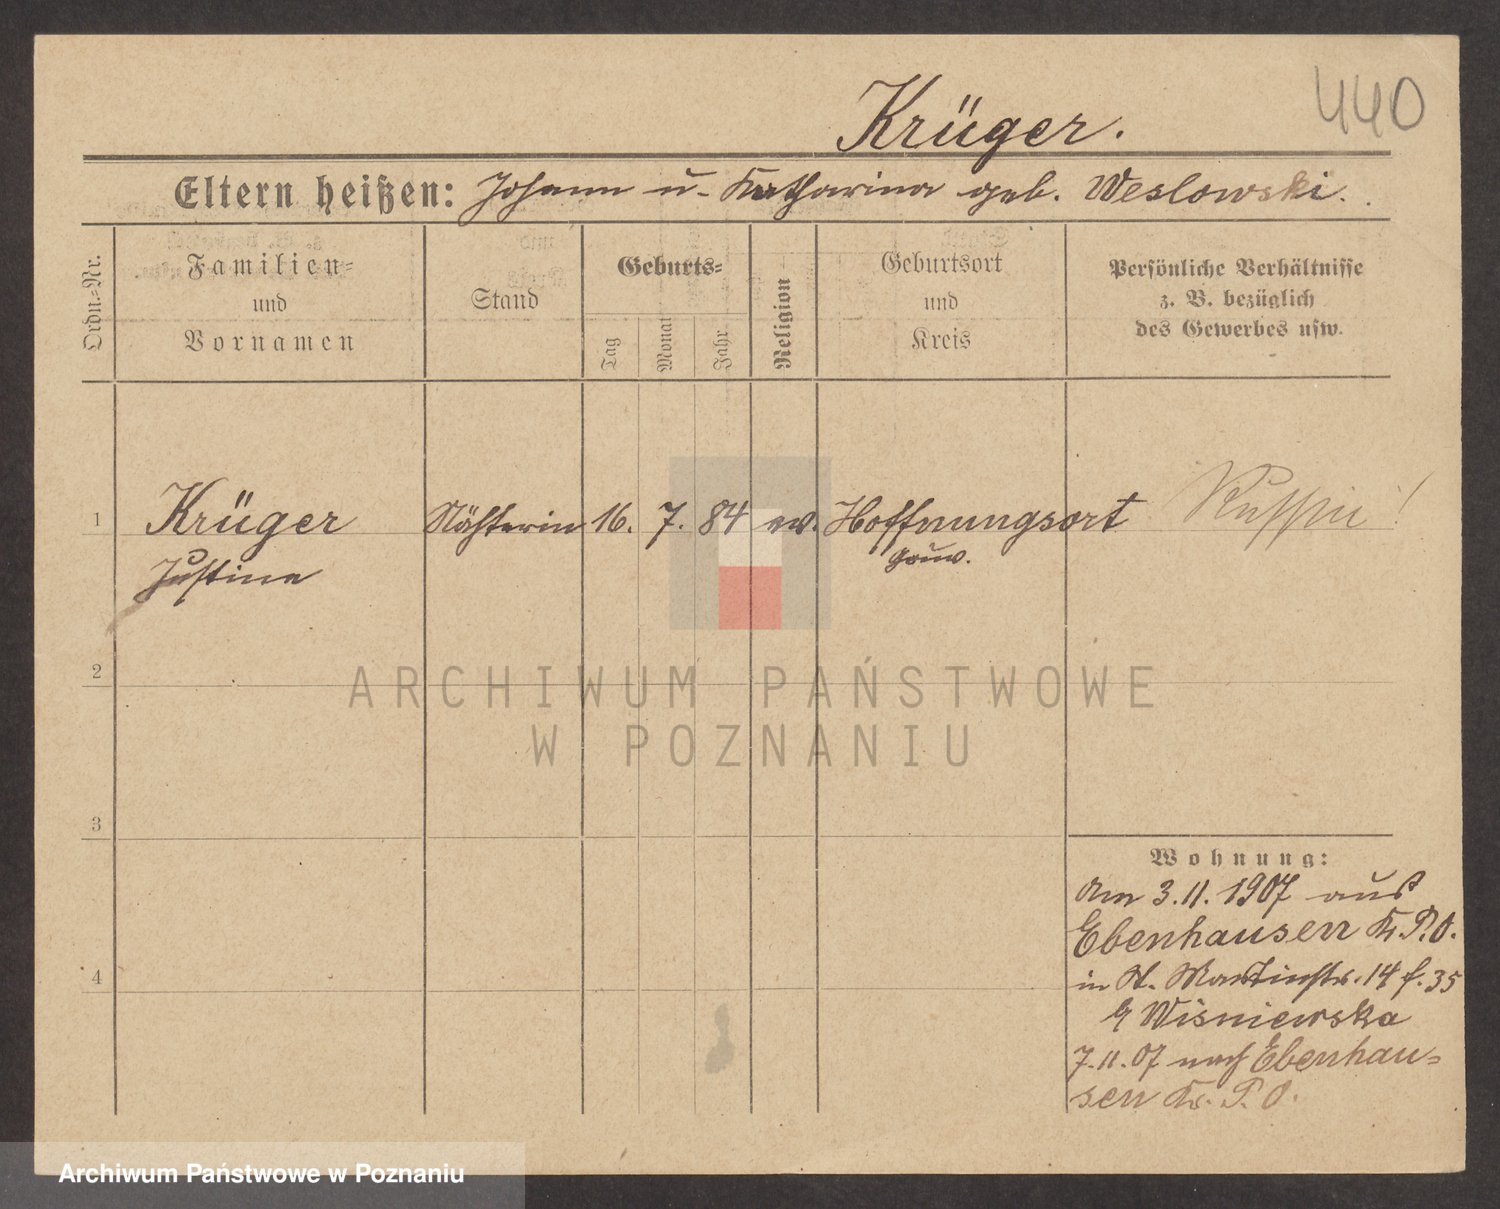 440
Krüger.
Eltern heißen: Johann u. Katharina geb. Weslowski.
Ordn.-Nr.
Familien-
und
Vornamen
Stand
Geburts-
Tag
Monat
Jahr
Religion
Geburtsort
und
Kreis
Persönliche Verhältnisse
z. B. bezüglich
des Gewerbes usw.
1 Krüger Nähterin 16. 7. 84 ev. Hoffnungsort
Justine
gouv.
2
3
4
Wohnung:
Am 3.11.1907 aus
Ebenhausen Kr. P.O.
in St. Martinstr. 14 f. 35
Wisniewska
7.11.07 nach Ebenhau-
sen Kr. P. O.
ARCHIWUM PAŃSTWOWE
W POZNANIU
Archiwum Państwowe w Poznaniu